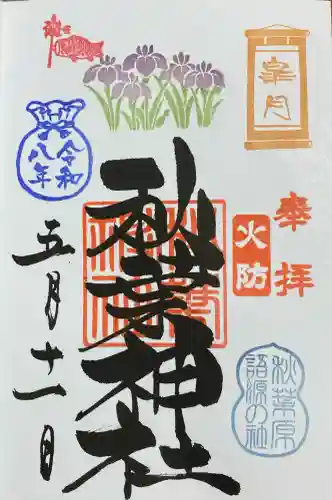 皐月
奉拝
火防
秋葉原
語源の社
秋葉神社
令和
八年
五月十一日